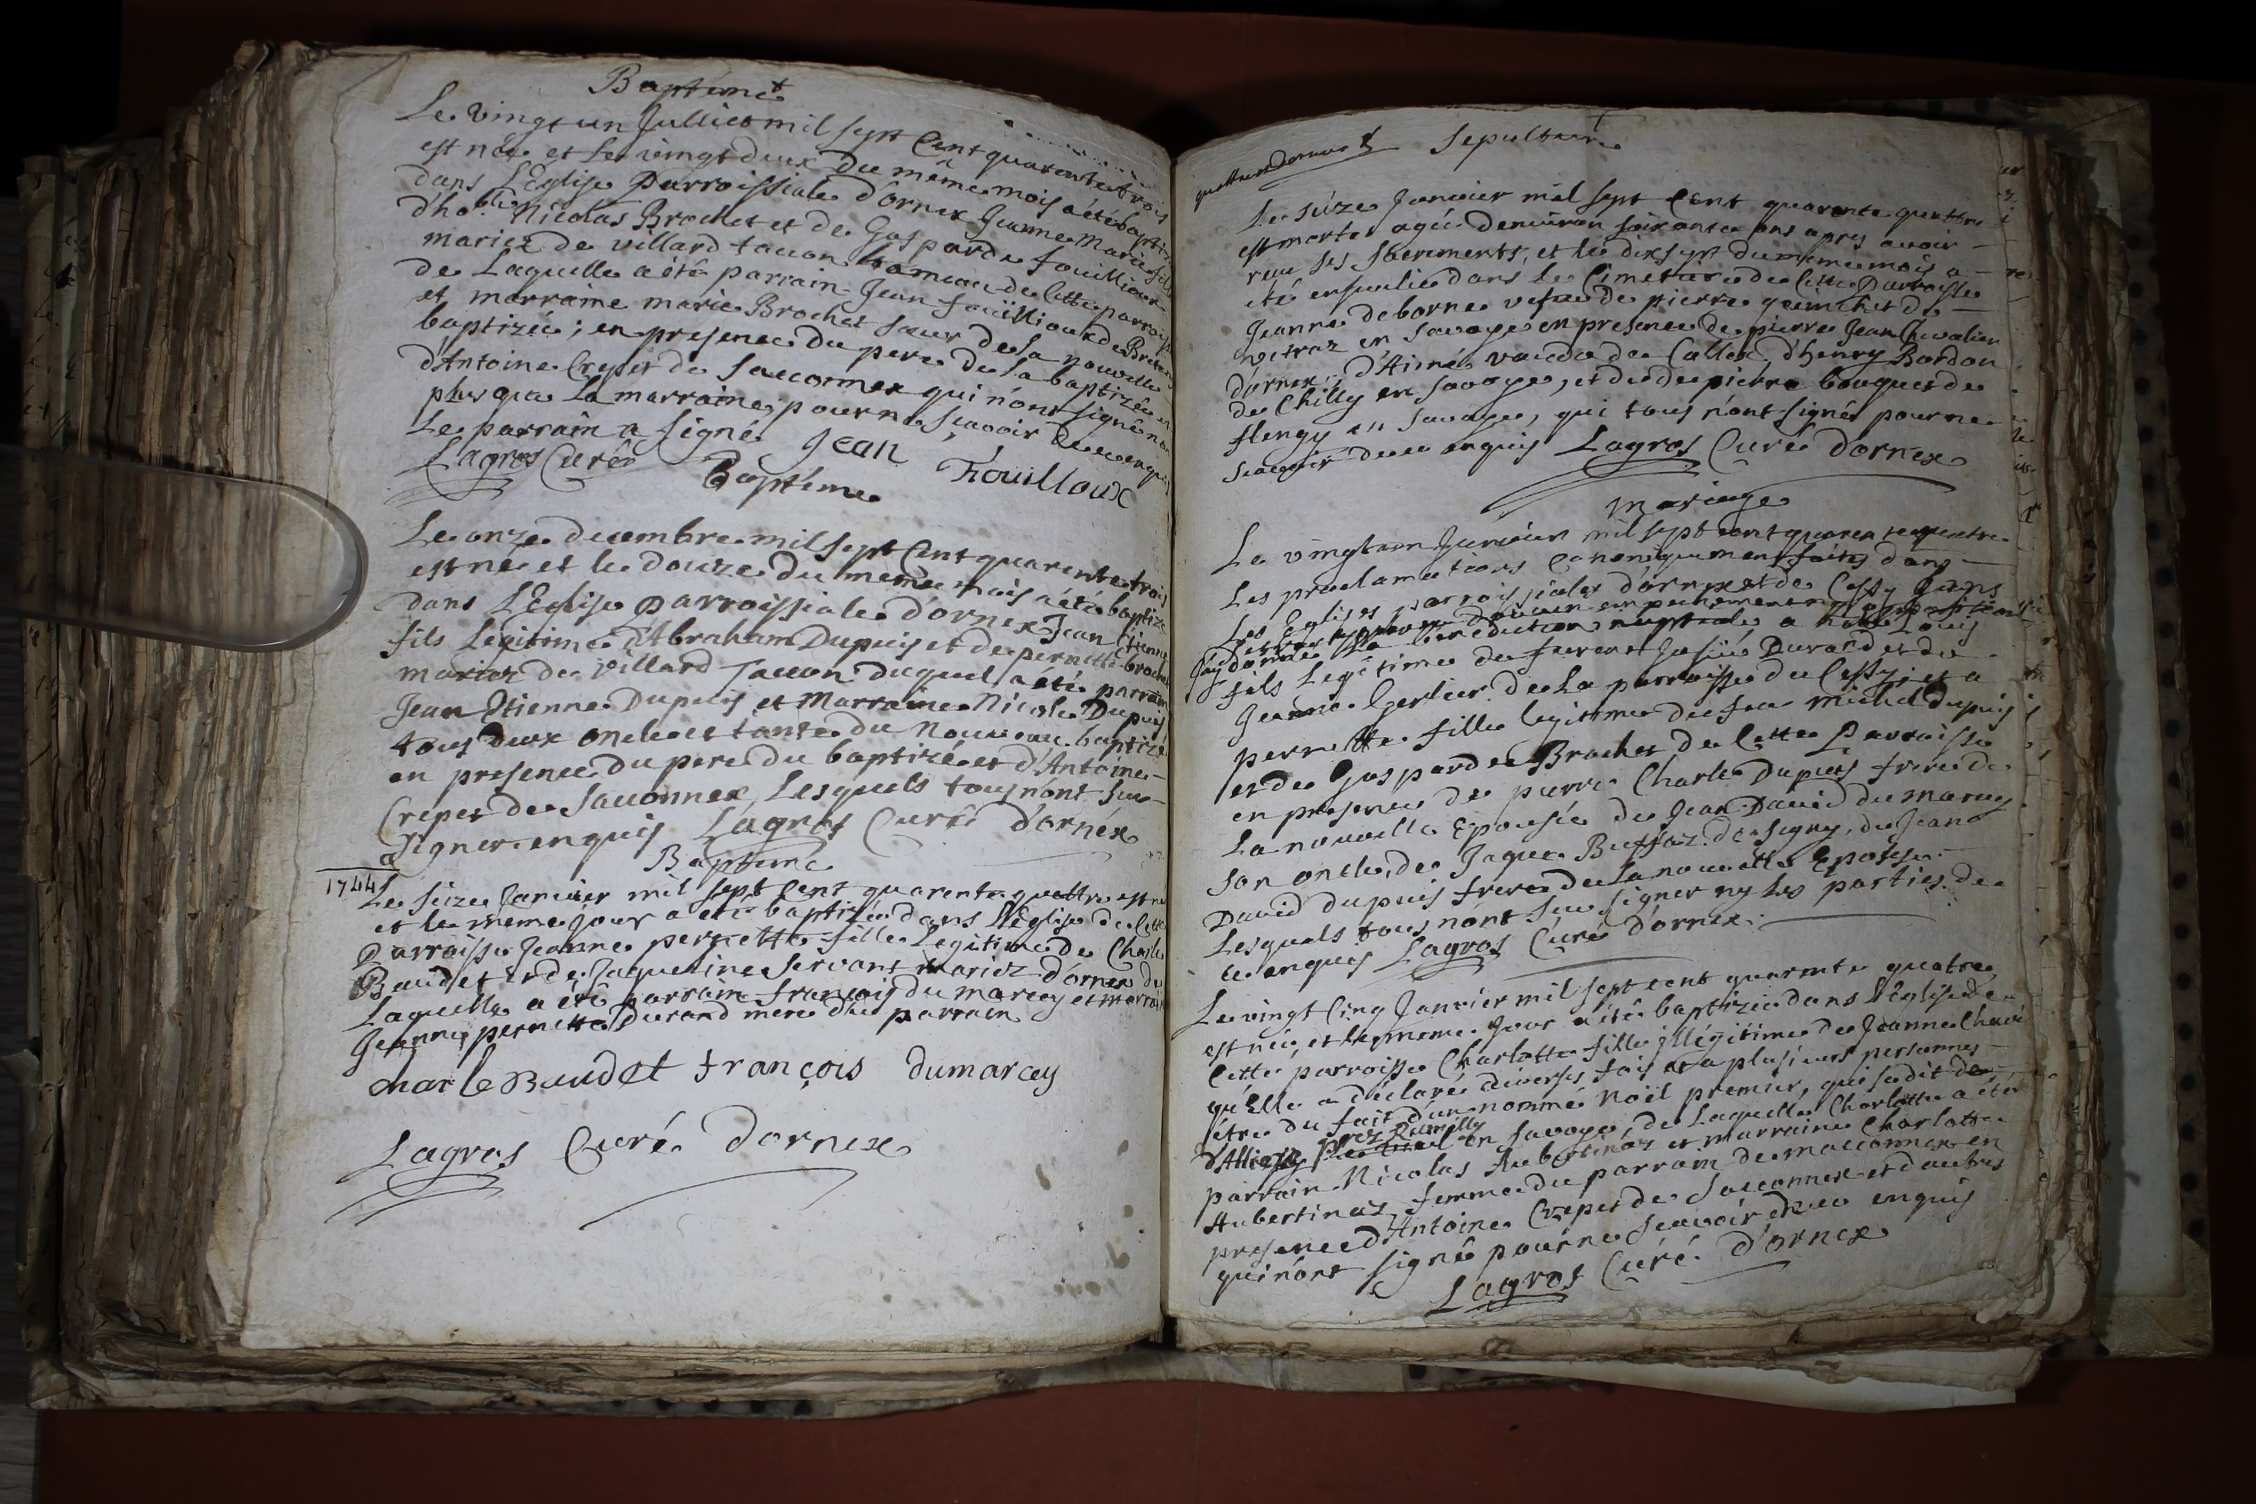 Baptéme
Le vingt un Julliet mil sept Cent quarante trois
est née et le vingt deux du même mois a été baptizé
dans L'Eglise Parroissiale d'ornex Jeanne Marie fille
d'ho.ble Nicolas Brochet et de Gasparde fouillioux
mariez de villard tacon hameau de Cette parroisse
de Laquelle a été parrain Jean fouillioux de Bretigny
et marraine marie Brochet sœur de la nouvelle
baptizée; en presence du pere de la baptizée et
d'Antoine Crepet de Sacconnex qui n'ont signé non
plus que la marraine, pour ne Scavoir de ce enquis
Le parrain a signé Jean Fouilloux
Lagros Curé
Baptéme
Le onze decembre mil sept Cent quarante trois
est né et le douze du meme mois a été baptizé
dans L'Eglise parroissiale d'ornex Jean Etienne
fils Legitime d'Abraham Dupuis et de pernette brochet
mariez de villard Taccon duquel a été parrain
Jean Etienne Dupuis et Marraine Nicole Dupuis
tous deux oncle et tante du Nouveau baptizé
en presence du pere du baptizé et d'Antoine
Crepet de Sacconnex, Lesquels tous n'ont sceu
signer enquis Lagros Curé d'ornex
Baptéme
1744
Le seize Janvier mil sept Cent quarente quattre est née
et le meme jour a été baptizée dans L'église de Cette
Parroisse Jeanne pernette fille Legitime de Charle
Baudet et de Jaqueline Servant mariez d'ornex de
Laquelle a été parrain françois du marcey et marraine
Jeanne pernette Durand mere du parrain
charle Baudet françois dumarcey
Lagros Curé Dornex
Sepulture
Le seize Janvier mil sept Cent quarente quattre
est morte agée denviron soixante ans apres avoir
receu ses sacrements, et le dix sept du meme mois a
été ensevelie dans le Cimetiere de Cette Parroisse
Jeanne deborne vefue de pierre de
vetraz en savoye en presence de pierre Jean Chevalier
d'ornex; d'Aimé vaude de Collex, d'henry Bordon
de Chilly en Savoye, et de pierre bouquet de
flengy en Savoye, qui tous n'ont signé pour ne
scavoir de ce enquis Lagros Curé d'ornex
Mariage
Le vingt un Janvier mil sept cent quarente quattre
Les proclamations Canoniquement faites dans
Les Eglises parroissiales d'ornex et de Cessy sans
j'ay donné la benediction nuptiale a Louis
fils Legitime de Durand et de
Jeanne Gerlier de La parroisse de Cessy, et a
pernette fille legitime de feu michel dupuis
et de Gasparde Brochet de Cette Parroisse
en presence de pierre Charle Dupuis frere de
La nouvelle Epousée de Jean David du marcey
son oncle, de Jaque Buffaz de Segny, de Jean
David dupuis frere de la nouvelle Epouse.
Lesquels tous n'ont sceu signer ny les parties de
ce enquis Lagros Curé d'ornex.
Le vingt Cinq Janvier mil sept cent quarente quatre
est née, et le meme Jour a été baptizée dans L'Eglise de
Cette parroisse Charlotte fille illégitime de Jeanne
qu'Elle a déclaré diverses fois et a plusieurs personnes
être du fait d'un nommé Noël premier, qui se dit de
prez Rumilly
en Savoye, de Laquelle Charlotte a été
parrain Nicolas Aubertinaz et marraine Charlotte
Aubertinaz femme du parrain de maconnex en
presence d'Antoine Crepet de Sacconnex et d'autres
qui n'ont signé pour ne Scavoir de ce enquis
Lagros Curé d'ornex